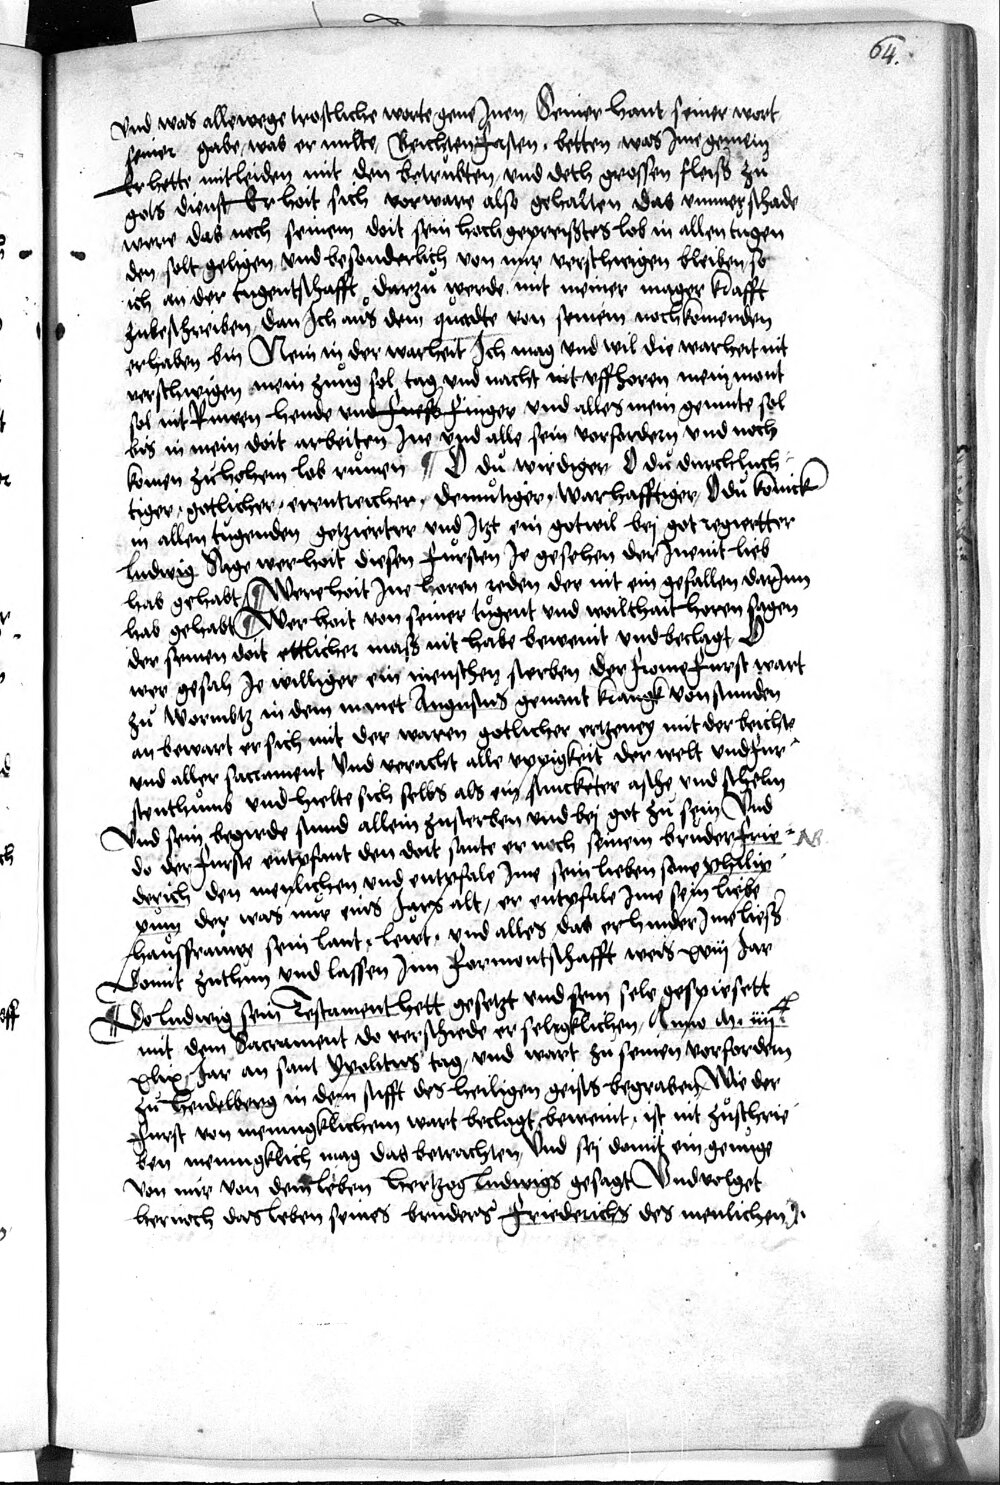 64.
vnd was allewege trostliche worte gene Inen, Seiner hant seiner wort
seiner gabe, was er milte, Beichten fasten, betten was Ime gemein
Er hette mitleiden mit den betrubten, vnd deth grossen fleiß zu
gots dienst Er hoit sich vorware also gehalten das ymmer schade
were das noch seinem doit sein hoch geprreißtes lob in allen tugen
den solt geligen vnd besonderlich von mir verschwigen bleiben, so
ich an der tugentschafft dar zu werde mit meiner mager krafft
zubeschreiben, dan Ich aus dem von seinem nochkomenden
erhaben bin Nein in der warheit Ich mag vnd wil die warheit nit
verschwigen mein zung sol tag vnd nacht nit vffhoren mein mont
sol nit Ruwen hende vnd fuess finger vnd alles mein gemute sol
bis in mein doit arbeiten Ine vnd alle sein vorfordern vnd noch
komen zu hohem lob rumen ¶ O du wirdiger O du durchluch-
tiger, gotlicher, erentreicher, demutiger, warhafftiger, O du konick
in allen tugenden getzierter vnd Itzt ein gotwil bej got regiertter
ludwig Sage wer hoit diesen fursten Je gesehen der Ine nit lieb
hab gehabt, ¶ Were hoit Ine horen reden der nit ein gefallen dar Inn
hab gehabt ¶ Wer hoit von seiner tugent vnd woilthait horen sagen
der seinen doit ettlicher mass nit habe beweint vnd beclagt O
wer gesah Je williger ein menschen sterben der frome furst wart
zu Wormbtz in dem monet Augustus genant kranck von stunden
an bewart er sich mit der waren gotlicher ertzeney mit der beichte
vnd aller sacrament vnd veracht alle vppigkeit der welt vnd fur-
stenthums vnd hielte sich selbs als ein stincketer asche vnd schelm
Vnd sein begirde stund allein zusterben vnd bej got zu sein Vnd
do der furste entpfant den doit sante er noch seinem bruder frie- NB
derich den menlichen vnd entpfale Ime sein lieben sone philip-
pum der was nur eins Jars alt, er entpfale Ime sein liebe
haußfrauwe sein lant, lewt, vnd alles das er hinder Ime ließ
Domit zuthun vnd lassen Inn formontschafft weis xviij Jar
¶ Do ludwig sein Testament hett gesetzt vnd sein sele gespiesett
mit dem Sacrament do verschiede er selegklichen, Anno M. iiij c
xlix Jar an sant ypolitus tag, vnd wart zu seinen vorfordern
zu heidelberg in dem stifft des heiligen geists begraben, Wie der
furst von menigklichem wart beclagt, beweint, ist nit zuschrie-
ben menigklich mag das betrachten, Vnd sej domit ein genuge
von mir von dem leben hertzog ludwigs gesagt Vnd volget
hernoch das leben seines bruders friederichs des menlichen